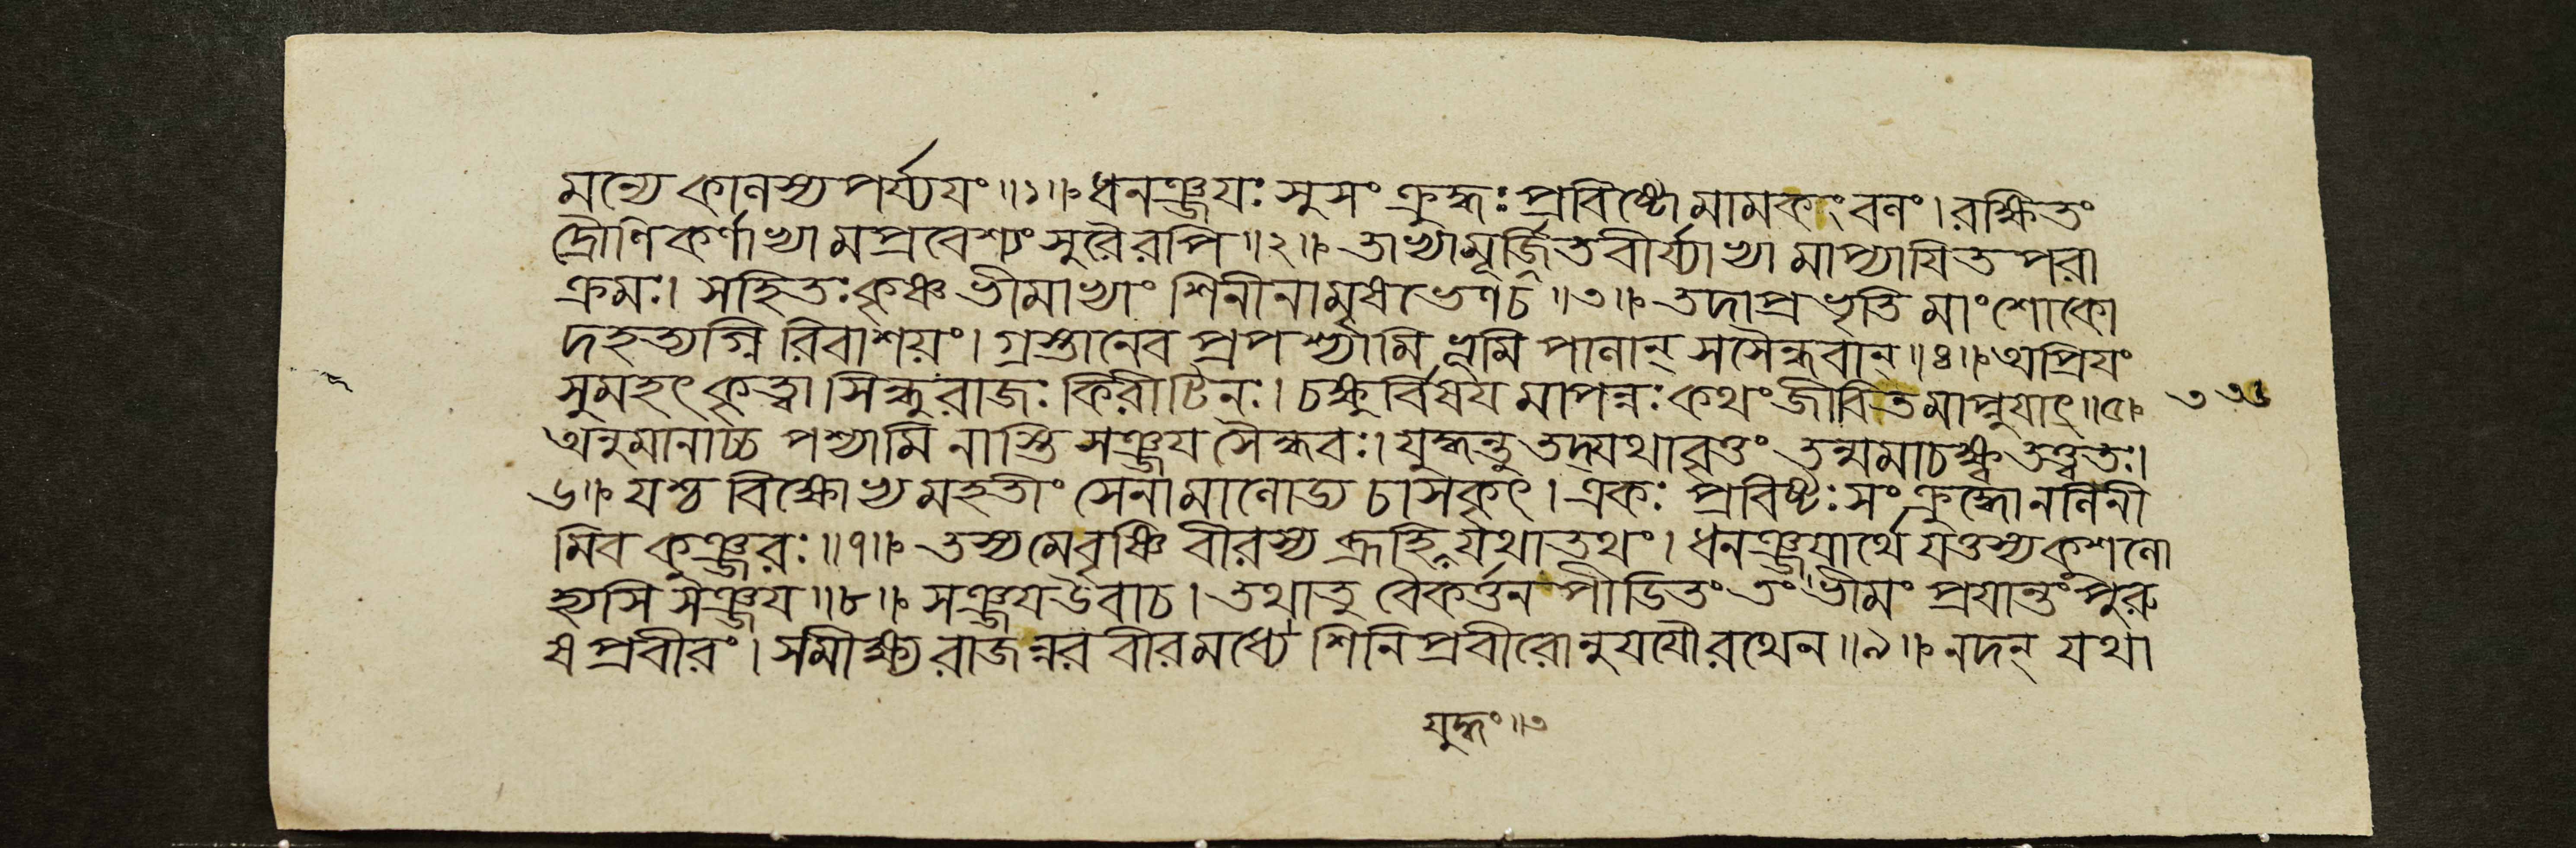 মন্যে কালস্য পর্য্যযং॥১॥ ধনঞ্জযঃ সুসংক্রুদ্ধঃ প্রবিষ্টো মামকং বলং। রক্ষিতং
দ্রৌণিকর্ণাভ্যামপ্রবেশ্যং সুরৈরপি॥২॥ তাভ্যামূর্জিতবীর্য্যাভ্যামাপ্যাযিতপরা
ক্রমঃ। সহিতঃ কৃষ্ণভীমাভ্যাং শিনীনামৃষভেণ চ॥৩॥ তদাপ্রভৃতি মাং শোকো
দহত্যগ্নিরিবাশয়ং। গ্রস্তানেব প্রপশ্যামি ভূমিপালান্ সসৈন্ধবান্॥৪॥ অপ্রিযং
সুমহৎ কৃত্বা সিন্ধুরাজঃ কিরীটিনঃ। চক্ষুর্বিষযমাপন্নঃ কথং জীবিতমাপ্নুযাৎ॥৫॥
অনুমানাচ্চ পশ্যামি নাস্তি সঞ্জয সৈন্ধবঃ। যুদ্ধন্তু তদ্যথাবৃত্তং তন্মমাচক্ষ্ব তত্ত্বতঃ।
৬॥ যশ্চ বিক্ষোভ্য মহতীং সেনামালোড্য চাসকৃৎ। একঃ প্রবিষ্টঃ সংক্রুদ্ধো নলিনী
মিব কুঞ্জরঃ॥৭॥ তস্য মে বৃষ্ণিবীরস্য ব্রূহি যুদ্ধং যথাতথং। ধনঞ্জযার্থে যত্তস্য কুশলো
হ্যসি সঞ্জয॥৮॥ সঞ্জয উবাচ। তথা তু বৈকর্ত্তনপীডিতং তং ভীমং প্রযান্তং পুরু
ষপ্রবীরং। সমীক্ষ্য রাজন্নরবীরমধ্যে শিনিপ্রবীরোনুযযৌ রথেন॥৯॥ নদন্ যথা
যুদ্ধং॥৩